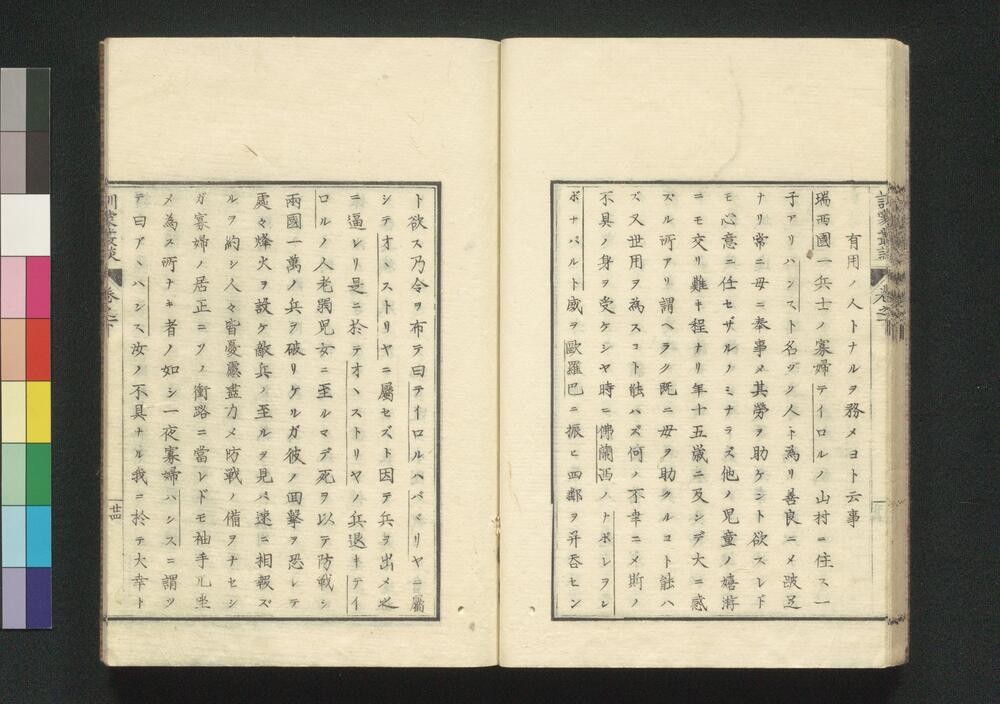 有用ノ人トナルヲ務メヨト云事
瑞西國一兵士ノ寡婦テイロルノ山村ニ住ス一
子アリハンスト名ヅク人ト為リ善良ニメ跛足
ナリ常ニ母ニ奉事メ其勞ヲ助ケント欲スレド
モ心意ニ任セザルノミナラズ他ノ児童ノ嬉游
ニモ交リ難キ程ナリ年十五歳ニ及ンデ大ニ感
ズル所アリ謂ヘラク既ニ母ヲ助クルコト能ハ
ズ又世用ヲ為スコト能ハズ何ノ不幸ニメ斯ノ
不具ノ身ヲ受ケシヤ時ニ佛蘭西ノナポレヲレ
ボナパルト威ヲ歐羅巴ニ振ヒ四鄰ヲ并呑セン
ト欲ス乃令ヲ布テ曰テイロルハバヾリヤニ屬
シテオヽストリヤニ屬セズト因テ兵ヲ出メ之
ニ逼レリ是ニ於テオヽストリヤノ兵退キテイ
ロルノ人老弱児女ニ至ルマデ死ヲ以テ防戰シ
兩國一萬ノ兵ヲ破リケルガ彼ノ回擊ヲ恐レテ
處々烽火ヲ設ケ敵兵ノ至ルヲ見バ速ニ相報ズ
ルヲ約シ人々皆憂慮盡力メ防戰ノ備ヲナセシ
ガ寡婦ノ居正ニツノ衝路ニ當レドモ袖手兀坐
メ為ス所ナキ者ノ如シ一夜寡婦ハンスニ謂ツ
テ曰アヽハンシス汝ノ不具ナル我ニ於テ大幸ト
訓蒙叢談
卷之下
廿四